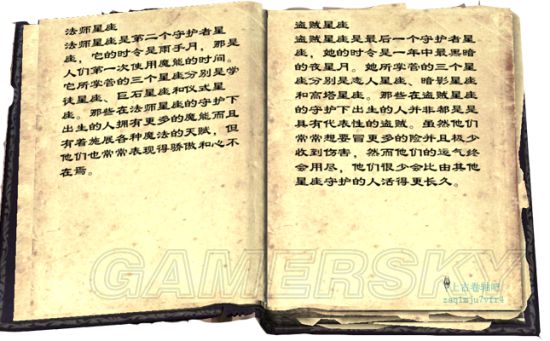 法师星座
法师星座是第二个守护者星
座，它的时令是雨手月，那是
人们第一次使用魔能的时间。
它所掌管的三个星座分别是学
徒星座、巨石星座和仪式星
座。那些在法师星座的守护下
出生的人拥有更多的魔能而且
有着施展各种魔法的天赋，但
他们也常常表现得骄傲和心不
在焉。
盗贼星座
盗贼星座是最后一个守护者星
座，她的时令是一年中最黑暗
的夜星月。她所掌管的三个星
座分别是恋人星座、暗影星座
和高塔星座。那些在盗贼星座
的守护下出生的人并非都是是
具有代表性的盗贼。虽然他们
常常想要冒更多的险并且极少
收到伤害，然而他们的运气终
会用尽，他们很少会比由其他
星座守护的人活得更长久。
GAMERSKY
上古卷轴吧
zaq1mju7vfr4